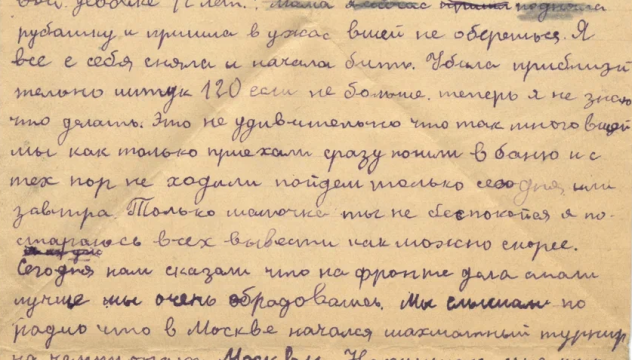 девочке 12 лет. мама подняла
рубашку и пришла в ужас вшей не оберешься. Я
все с себя сняла и начала бить. Убила приблизи
тельно штук 120 если не больше. теперь я не знаю
что делать. Это не удивительно что так много вшей
мы как только приехали сразу пошли в баню и с
тех пор не ходили пойдем только сегодня или
завтра. Только мамочка ты не беспокойся я по-
стараюсь всех вывести как можно скорее.
Сегодня нам сказали что на фронте дела стали
лучше мы очень обрадовались. Мы слышали по
радио что в Москве начался шахматный турнир
на Москвы.